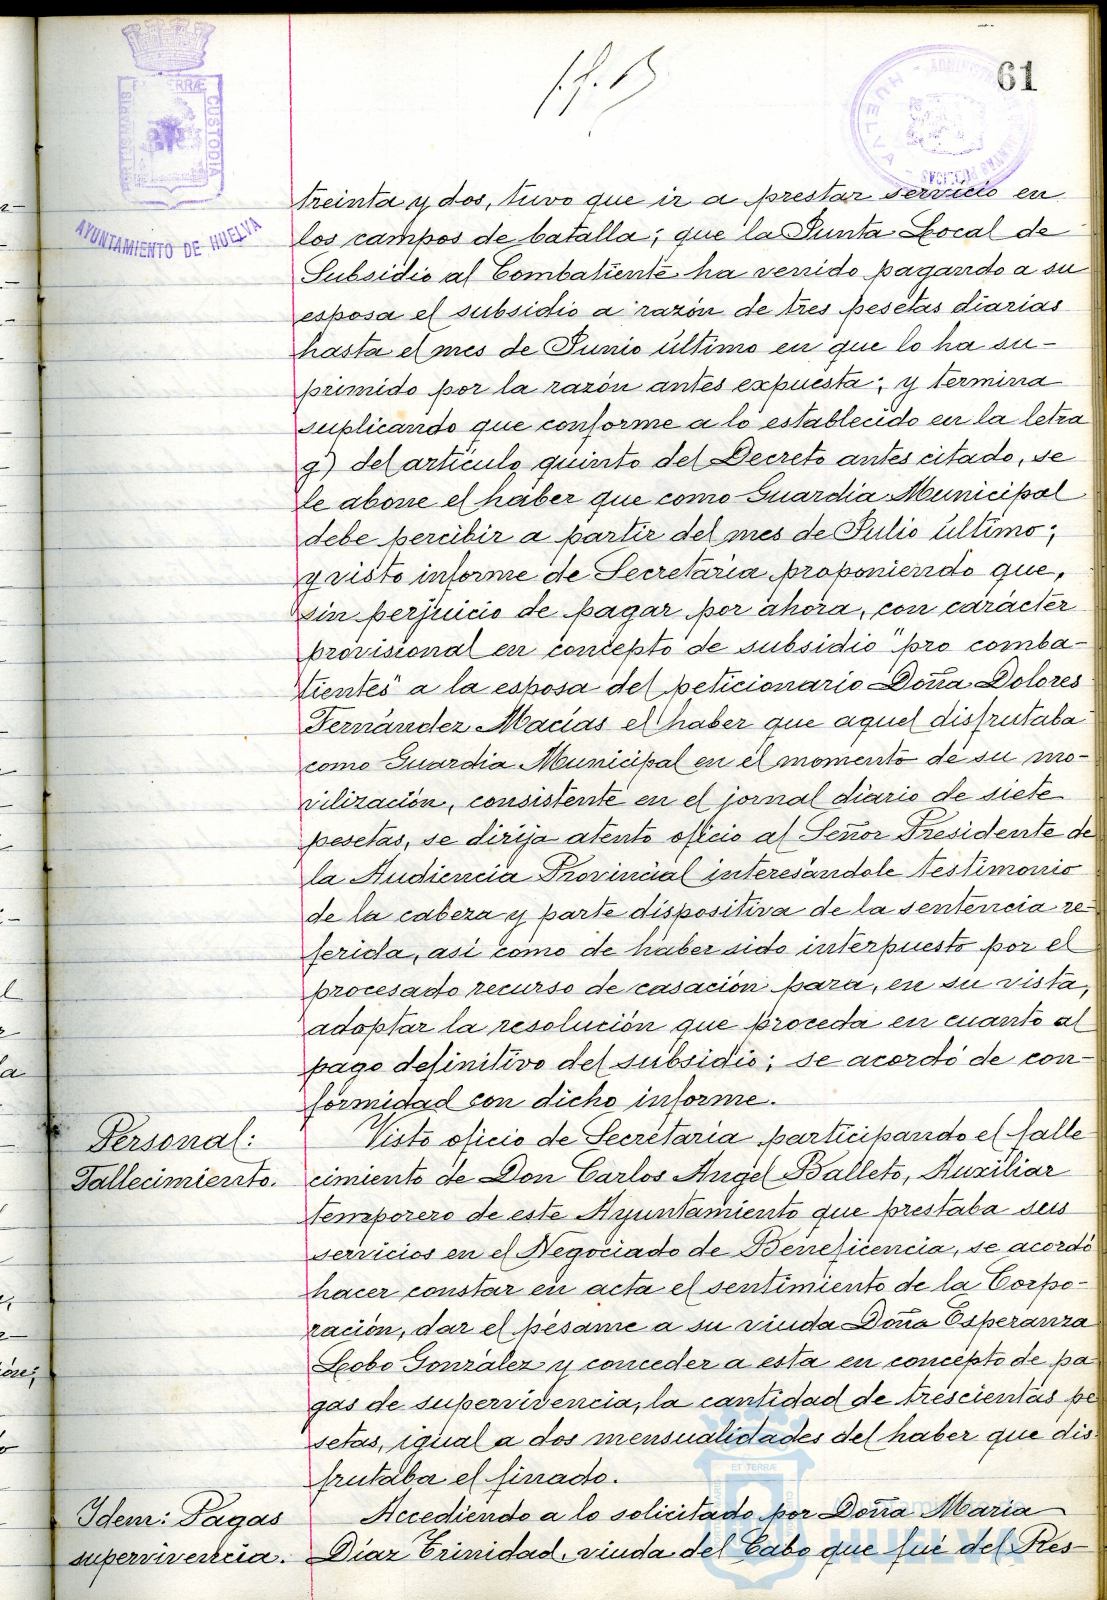 61
AYUNTAMIENTO DE HUELVA
treinta y dos, tuvo que ir a prestar servicio en
los campos de batalla; que la Junta Local de
Subsidio al Combatiente ha venido pagando a su
esposa el subsidio a razón de tres pesetas diarias
hasta el mes de Junio último en que lo ha su-
primido por la razón antes expuesta; y termina
suplicando que conforme a lo establecido en la letra
g) del artículo quinto del Decreto antes citado, se
le abone el haber que como Guardia Municipal
debe percibir a partir del mes de Julio último;
y visto informe de Secretaria proponiendo que,
sin perjuicio de pagar por ahora, con carácter
provisional en concepto de subsidio "pro comba-
tientes" a la esposa del peticionario Doña Dolores
Fernández Macías el haber que aquel disfrutaba
como Guardia Municipal en el momento de su mo-
vilización, consistente en el jornal diario de siete
pesetas, se dirija atento oficio al Señor Presidente de
la Audiencia Provincial interesándole testimonio
de la cabeza y parte dispositiva de la sentencia re-
ferida, así como de haber sido interpuesto por el
procesado recurso de casación para, en su vista,
adoptar la resolución que proceda en cuanto al
pago definitivo del subsidio; se acordó de con-
formidad con dicho informe.
Personal:
Fallecimiento.
Visto oficio de Secretaria participando el falle
cimiento de Don Carlos Angel Balleto, Auxiliar
temporero de este Ayuntamiento que prestaba sus
servicios en el Negociado de Beneficencia, se acordó
hacer constar en acta el sentimiento de la Corpo-
ración, dar el pésame a su viuda Doña Esperanza
Lobo González y conceder a esta en concepto de pa
gas de supervivencia, la cantidad de trescientas pe
setas, igual a dos mensualidades del haber que dis
frutaba el finado.
Idem: Pagas
supervivencia.
Accediendo a lo solicitado por Doña Maria
Díaz Trinidad, viuda del Cabo que fué del Res-